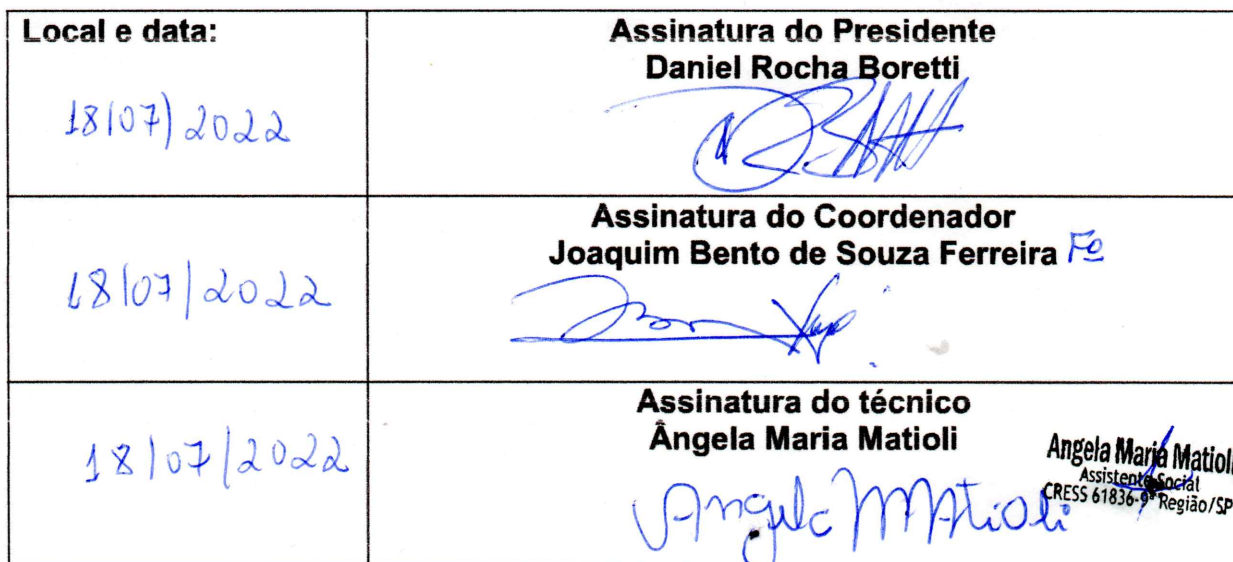 Local e data:
18/07/2022
Assinatura do Presidente
Daniel Rocha Boretti
18/07/2022
Assinatura do Coordenador
Joaquim Bento de Souza Ferreira Fº
18/07/2022
Assinatura do técnico
Ângela Maria Matioli
Angela Maria Matioli
Assistente Social
CRESS 61836-9ª Região/SP
Angela MMatioli